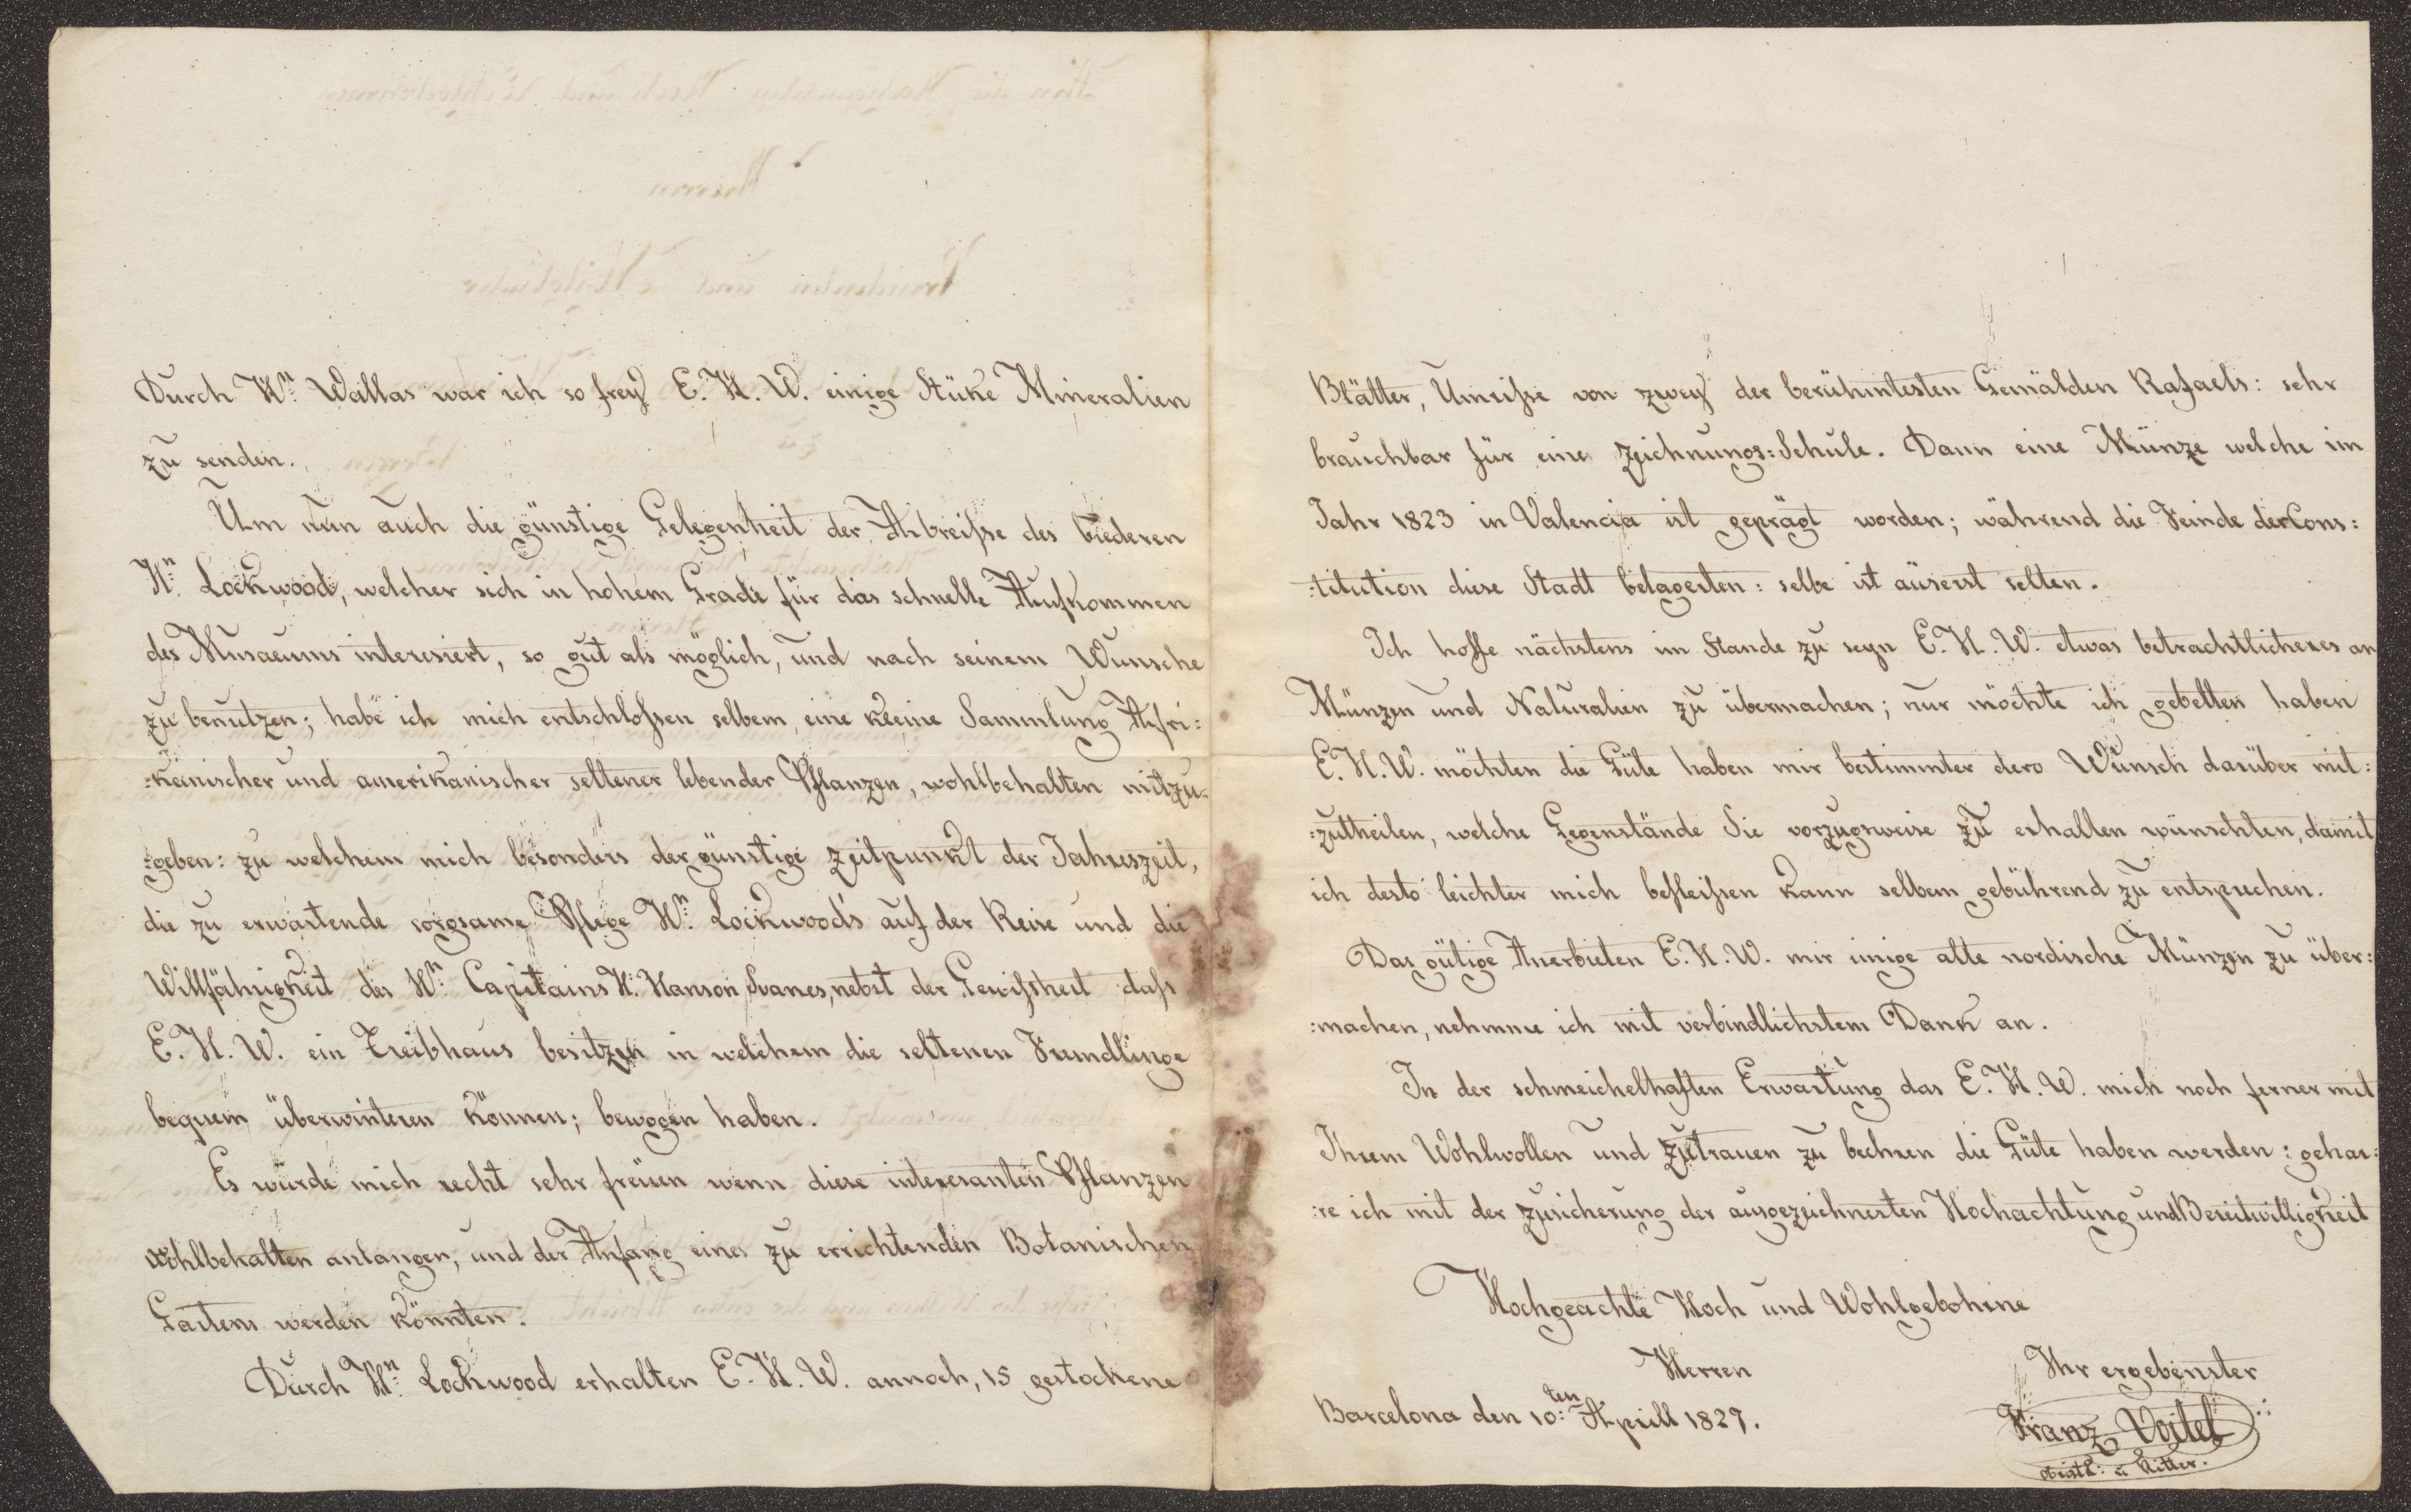 Durch Hn. Wallas war ich so frey E. H. W. einige Stüke Mineralien
zu senden.
Um nun auch die günstige Gelegenheit der Abreiße des biederen
Hn. Lockwood, welcher sich in hohem Grade für das schnelle Aufkommen
des Musaeums interesiert, so gut als möglich, und nach seinem Wunsche
zu benutzen; habe ich mich entschloßen selbem eine kleine Sammlung Afri:
:kanischer und amerikanischer seltener lebender Pflanzen, wohlbehalten mitzu:
:geben: zu welchem mich besonders der günstige Zeitpunkt der Jahreszeit,
die zu erwartende sorgsame Pflege Hn. Lockwood's auf der Reise und die
Willfährigkeit des Hn. Capitains H. Hanson Svanes, nebst der Gewißheit daß
E. H. W. ein Treibhaus besitzen in welchem die seltenen Fremdlinge
bequem überwinteren können; bewogen haben.
Es würde mich recht sehr freuen wenn diese interesanten Pflanzen
wohlbehalten anlangen, und der Anfang eines zu errichtenden Botanischen
Gartens werden könnten.
Durch Hn. Lockwood erhalten E. H. W. annoch, 15 gestochene
Blätter, Umriße von zwey der berühmtesten Gemälden Rafaels: sehr
brauchbar für eine Zeichnungs:Schule. Dann eine Münze welche im
Jahr 1823 in Valencia ist geprägt worden; während die Feinde der Cons:
:titution diese Stadt belagerten: selbe ist äuserst selten.
Ich hoffe nächstens im Stande zu seyn E. H. W. etwas betrachtlicheres an
Münzen und Naturalien zu übermachen; nur möchte ich gebetten haben
E. H. W. möchten die Güte haben mir bestimmter dero Wunsch darüber mit:
:zutheilen, welche Gegenstände Sie vorzugsweise zu erhalten wünschten, damit
ich desto leichter mich befleißen kann selbem gebührend zu entsprechen.
Das gütige Anerbieten E. H. W. mir einige alte nordische Münzen zu über:
:machen, nehmme ich mit verbindlichstem Dank an.
In der schmeichelhaften Erwartung das E. H. W. mich noch ferner mit
Ihrem Wohlwollen und Zutrauen zu beehren die Güte haben werden: gehar:
:re ich mit der Zusicherung der ausgezeichnesten Hochachtung und Bereitwilligkeit
Hochgeachte Hoch und Wohlgebohrne
Herren
Ihr ergebenster
Barcelona den 10:ten Aprill 1827.
Franz Voitel
Obristl: u Ritter.